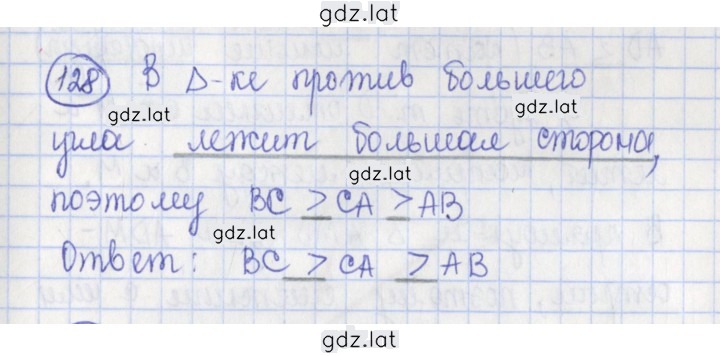 gdz.lat
128 В Δ-ке против большего
gdz.lat
gdz.lat
угла лежит большая сторона,
gdz.lat
поэтому BC > CA > AB
gdz.lat
Ответ: BC > CA > AB
gdz.lat